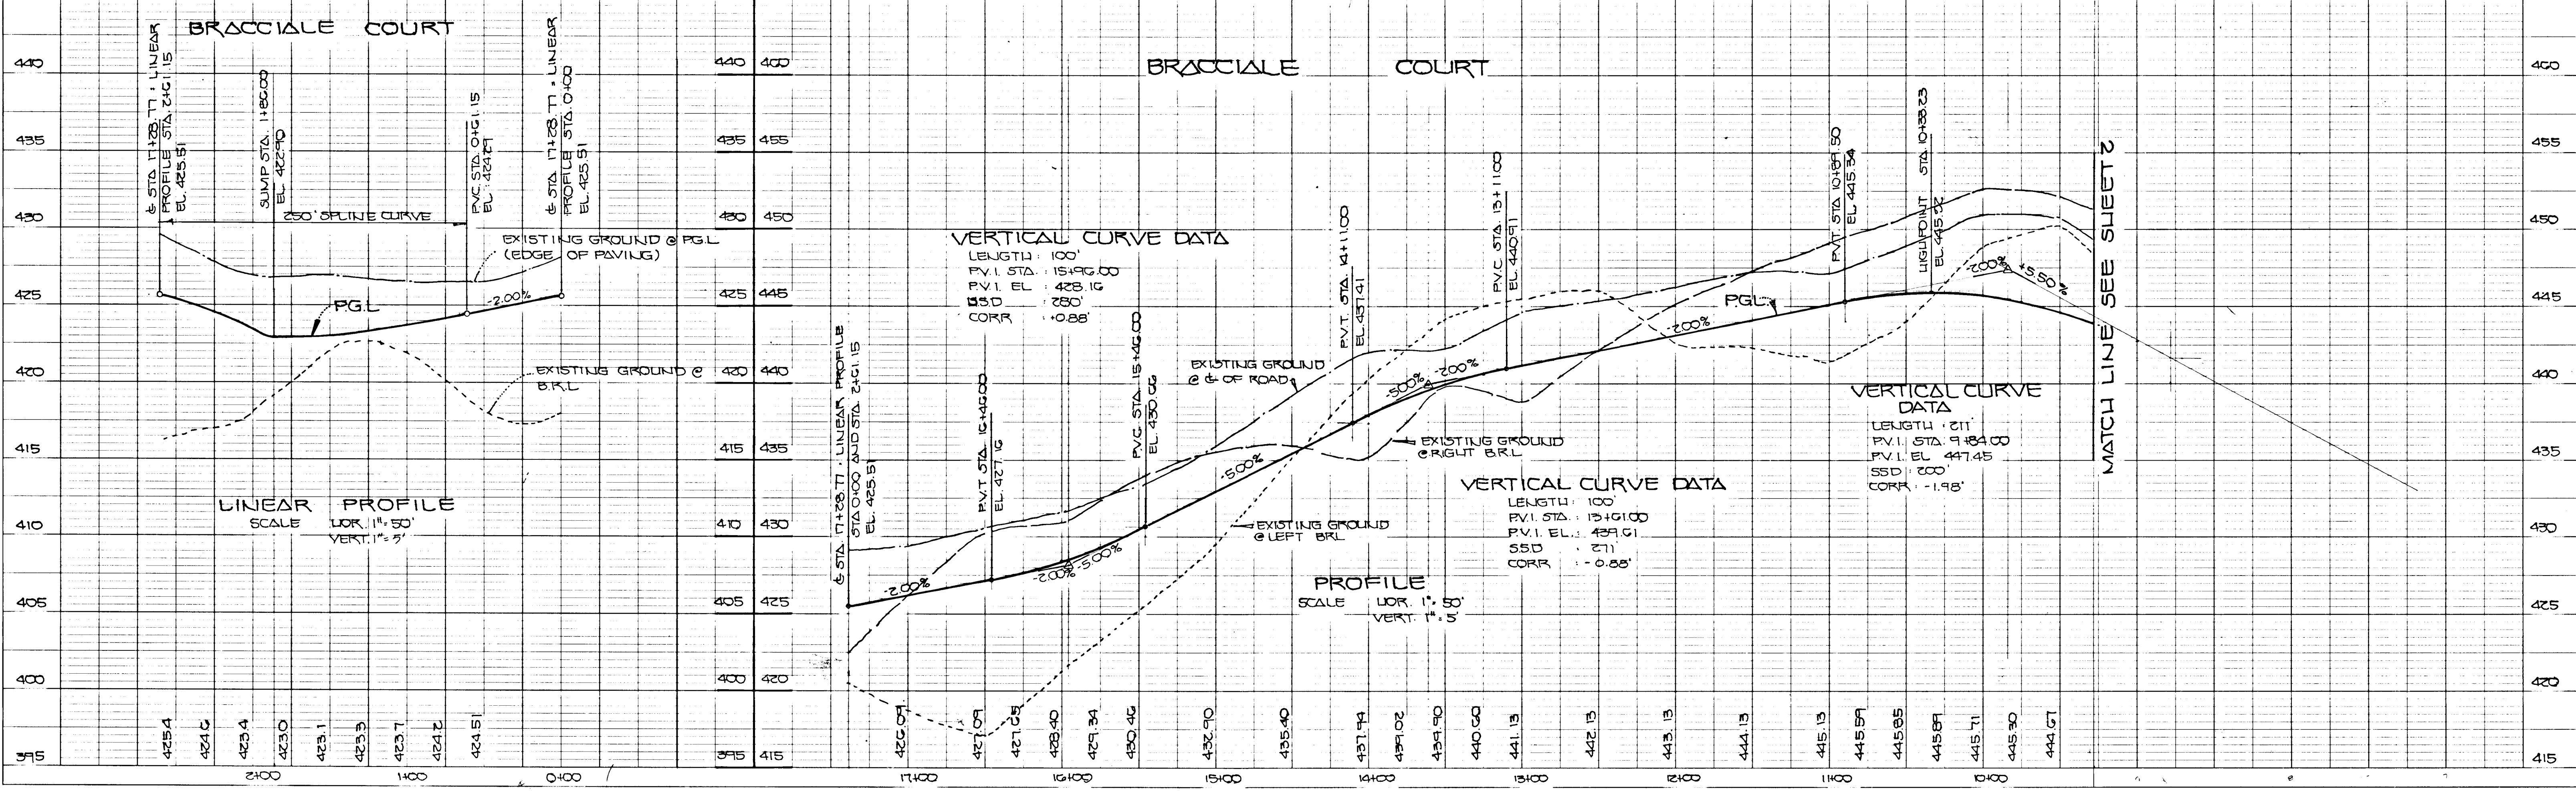 BRACCIALE COURT
440
435
430
425
420
415
410
405
400
395
℄ STA 17+28.77 = LINEAR
PROFILE STA. 2+61.15
EL. 425.51
SUMP STA. 1+86.00
EL. 422.90
250' SPLINE CURVE
P.V.C. STA. 0+61.15
EL. 424.29
℄ STA. 17+28.77 = LINEAR
PROFILE STA. 0+00
EL. 425.51
EXISTING GROUND @ P.G.L
(EDGE OF PAVING)
P.G.L
-2.00%
EXISTING GROUND @
B.R.L
LINEAR PROFILE
SCALE HOR. 1"= 50'
VERT. 1"= 5'
425.4
424.6
423.4
423.0
423.1
423.3
423.7
424.2
424.51
2+00
1+00
0+00
440 460
435 455
430 450
425 445
420 440
415 435
410 430
405 425
400 420
395 415
BRACCIALE COURT
VERTICAL CURVE DATA
LENGTH : 100'
P.V.I. STA. : 15+96.00
P.V.I. EL : 428.16
SSD : 280'
CORR : +0.88'
℄ STA. 17+28.77 = LINEAR PROFILE
STA 0+00 AND STA. 2+61.15
EL. 425.51
P.V.T STA. 16+46.00
EL. 427.16
P.V.C. STA. 15+46.00
EL. 430.66
EXISTING GROUND
@ ℄ OF ROAD
P.V.T. STA. 14+11.00
EL. 437.41
P.V.C STA. 13+11.00
EL. 440.91
P.V.T. STA 10+89.50
EL. 445.34
HIGH POINT STA. 10+38.23
EL. 445.92
MATCH LINE SEE SHEET 2
-2.00%
-2.00%
-5.00%
-5.00%
-5.00%
-2.00%
-2.00%
P.G.L.
-2.00%
+5.50%
EXISTING GROUND
@ RIGHT B.R.L
EXISTING GROUND
@ LEFT BRL
VERTICAL CURVE DATA
LENGTH : 100'
P.V.I. STA. : 13+61.00
P.V.I. EL. : 439.61
S.S.D : 271'
CORR : -0.88'
VERTICAL CURVE
DATA
LENGTH : 211'
P.V.I. STA. 9+84.00
P.V.I. EL 447.45
SSD : 200'
CORR : -1.98'
PROFILE
SCALE HOR. 1"= 50'
VERT. 1"= 5'
426.09
427.09
427.65
428.40
429.34
430.46
432.90
435.40
437.94
439.02
439.90
440.60
441.13
442.13
443.13
444.13
445.13
445.59
445.85
445.89
445.71
445.30
444.67
17+00
16+00
15+00
14+00
13+00
12+00
11+00
10+00
460
455
450
445
440
435
430
425
420
415